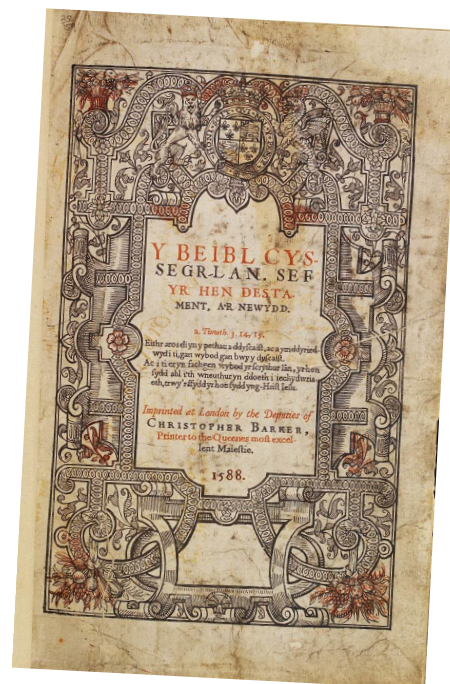 Y BEIBL CYS-
SEGR-LAN. SEF
YR HEN DESTA-
MENT, A'R NEWYDD.
2. Timoth. 3. 14, 15.
Eithr aros di yn y pethau a ddyscaist, ac a ymddyried-
wyd i ti, gan wybod gan bwy y dyscaist.
Ac i ti er yn fachgen wybod yr scrythur lân, yr hon
sydd abl i'th wneuthur yn ddoeth i iechydwria-
eth, trwy'r ffydd yr hon sydd yng-Hrist Iesu.
Imprinted at London by the Deputies of
CHRISTOPHER BARKER,
Printer to the Queenes most excel-
lent Maiestie.
1588.